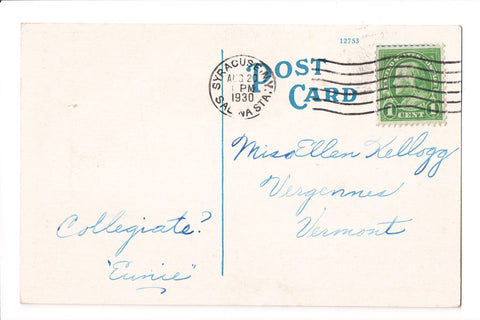 12753
POST CARD
SYRACUSE, N.Y.
AUG 20
1 PM
1930
SALINA STA.
1 CENT 1
Miss Ellen Kellogg
Vergennes
Vermont
Collegiate?
"Eunie"